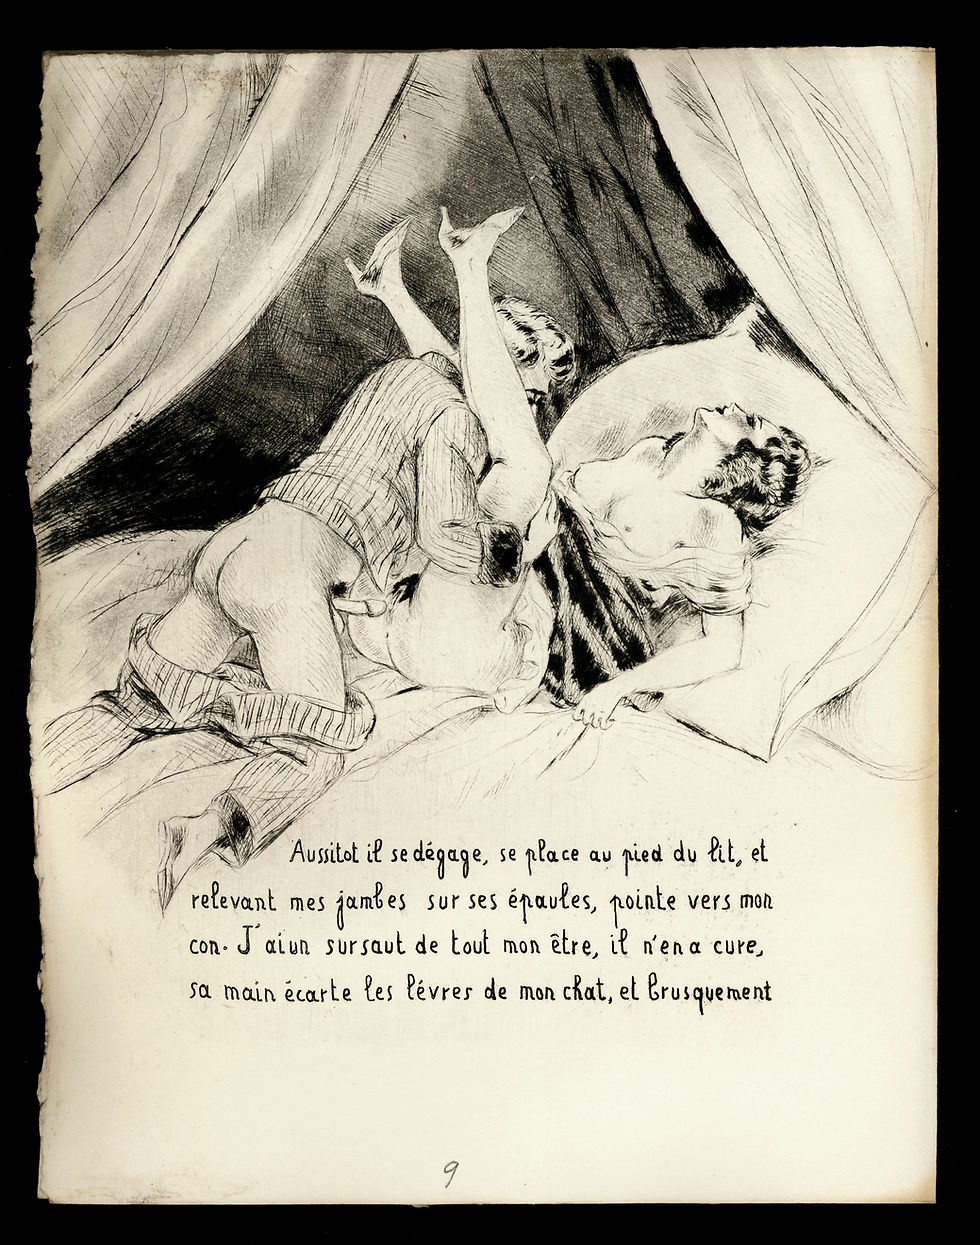 Aussitot il se dégage, se place au pied du lit, et
relevant mes jambes sur ses épaules, pointe vers mon
con. J'ai un sursaut de tout mon être, il n'en a cure,
sa main écarte les lévres de mon chat, et brusquement
9